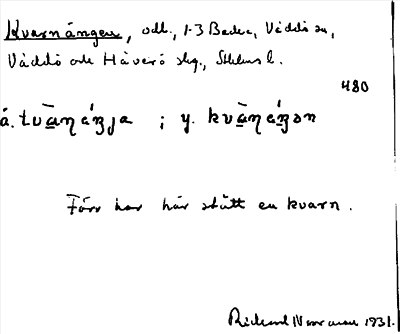 Kvarnängen, odl., 1-3 Backa, Väddö sn,
Väddö och Häverö skg., Sthlms l.
480
å. tvā̀ŋ áŋja ; y. kvā̀ŋ áŋən
Förr har här stått en kvarn.
Rickard Norrman 1931.